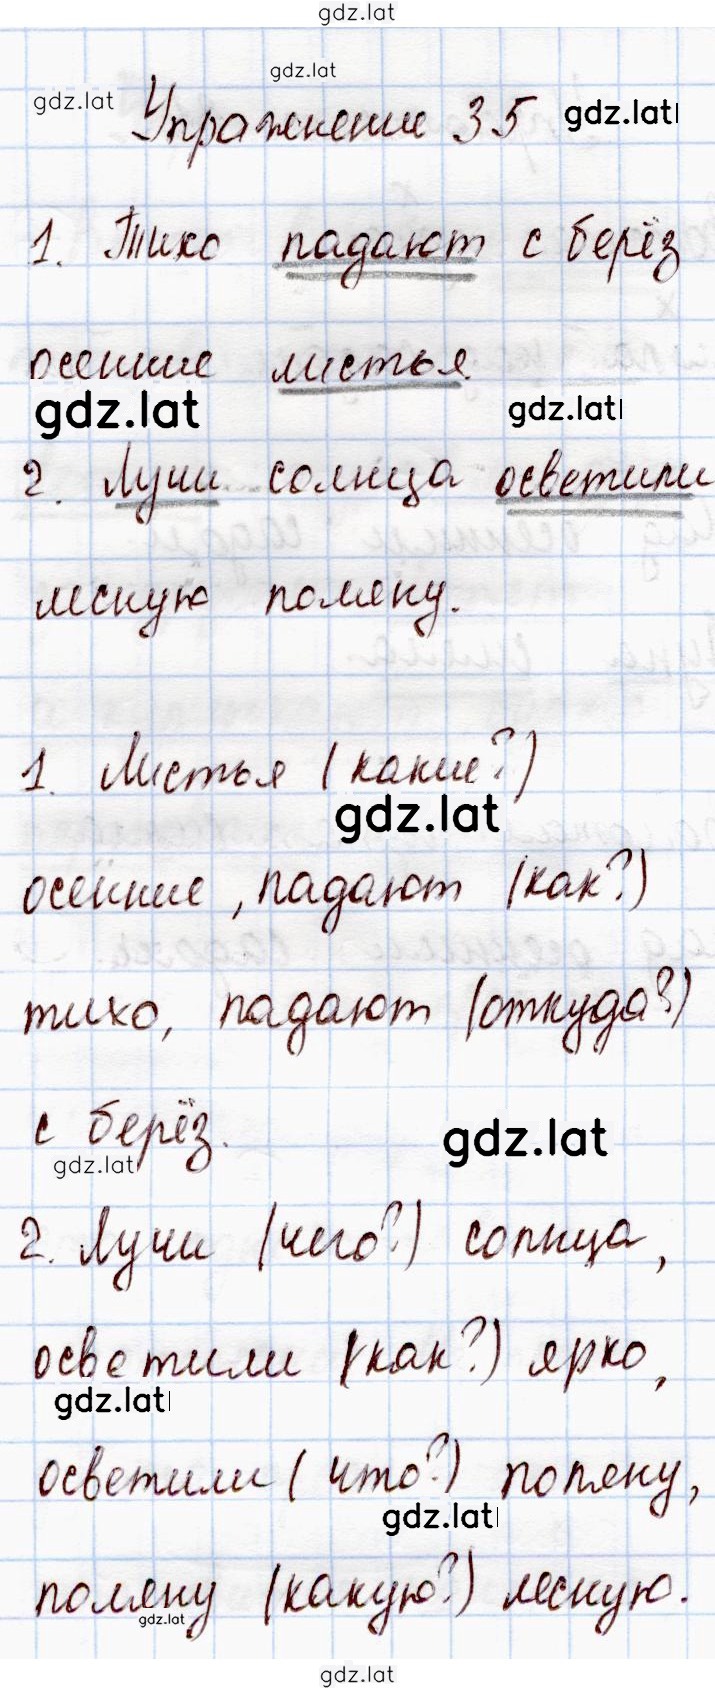 gdz.lat
gdz.lat
gdz.lat
Упражнение 35 gdz.lat
1. Тихо падают с берёз
осенние листья.
gdz.lat gdz.lat
2. Лучи солнца осветили
лесную поляну.
1. Листья (какие?)
gdz.lat
осенние, падают (как?)
тихо, падают (откуда?)
с берёз. gdz.lat
gdz.lat
2. Лучи (чего?) солнца,
осветили (как?) ярко,
gdz.lat
осветили (что?) поляну,
gdz.lat
поляну (какую?) лесную.
gdz.lat
gdz.lat